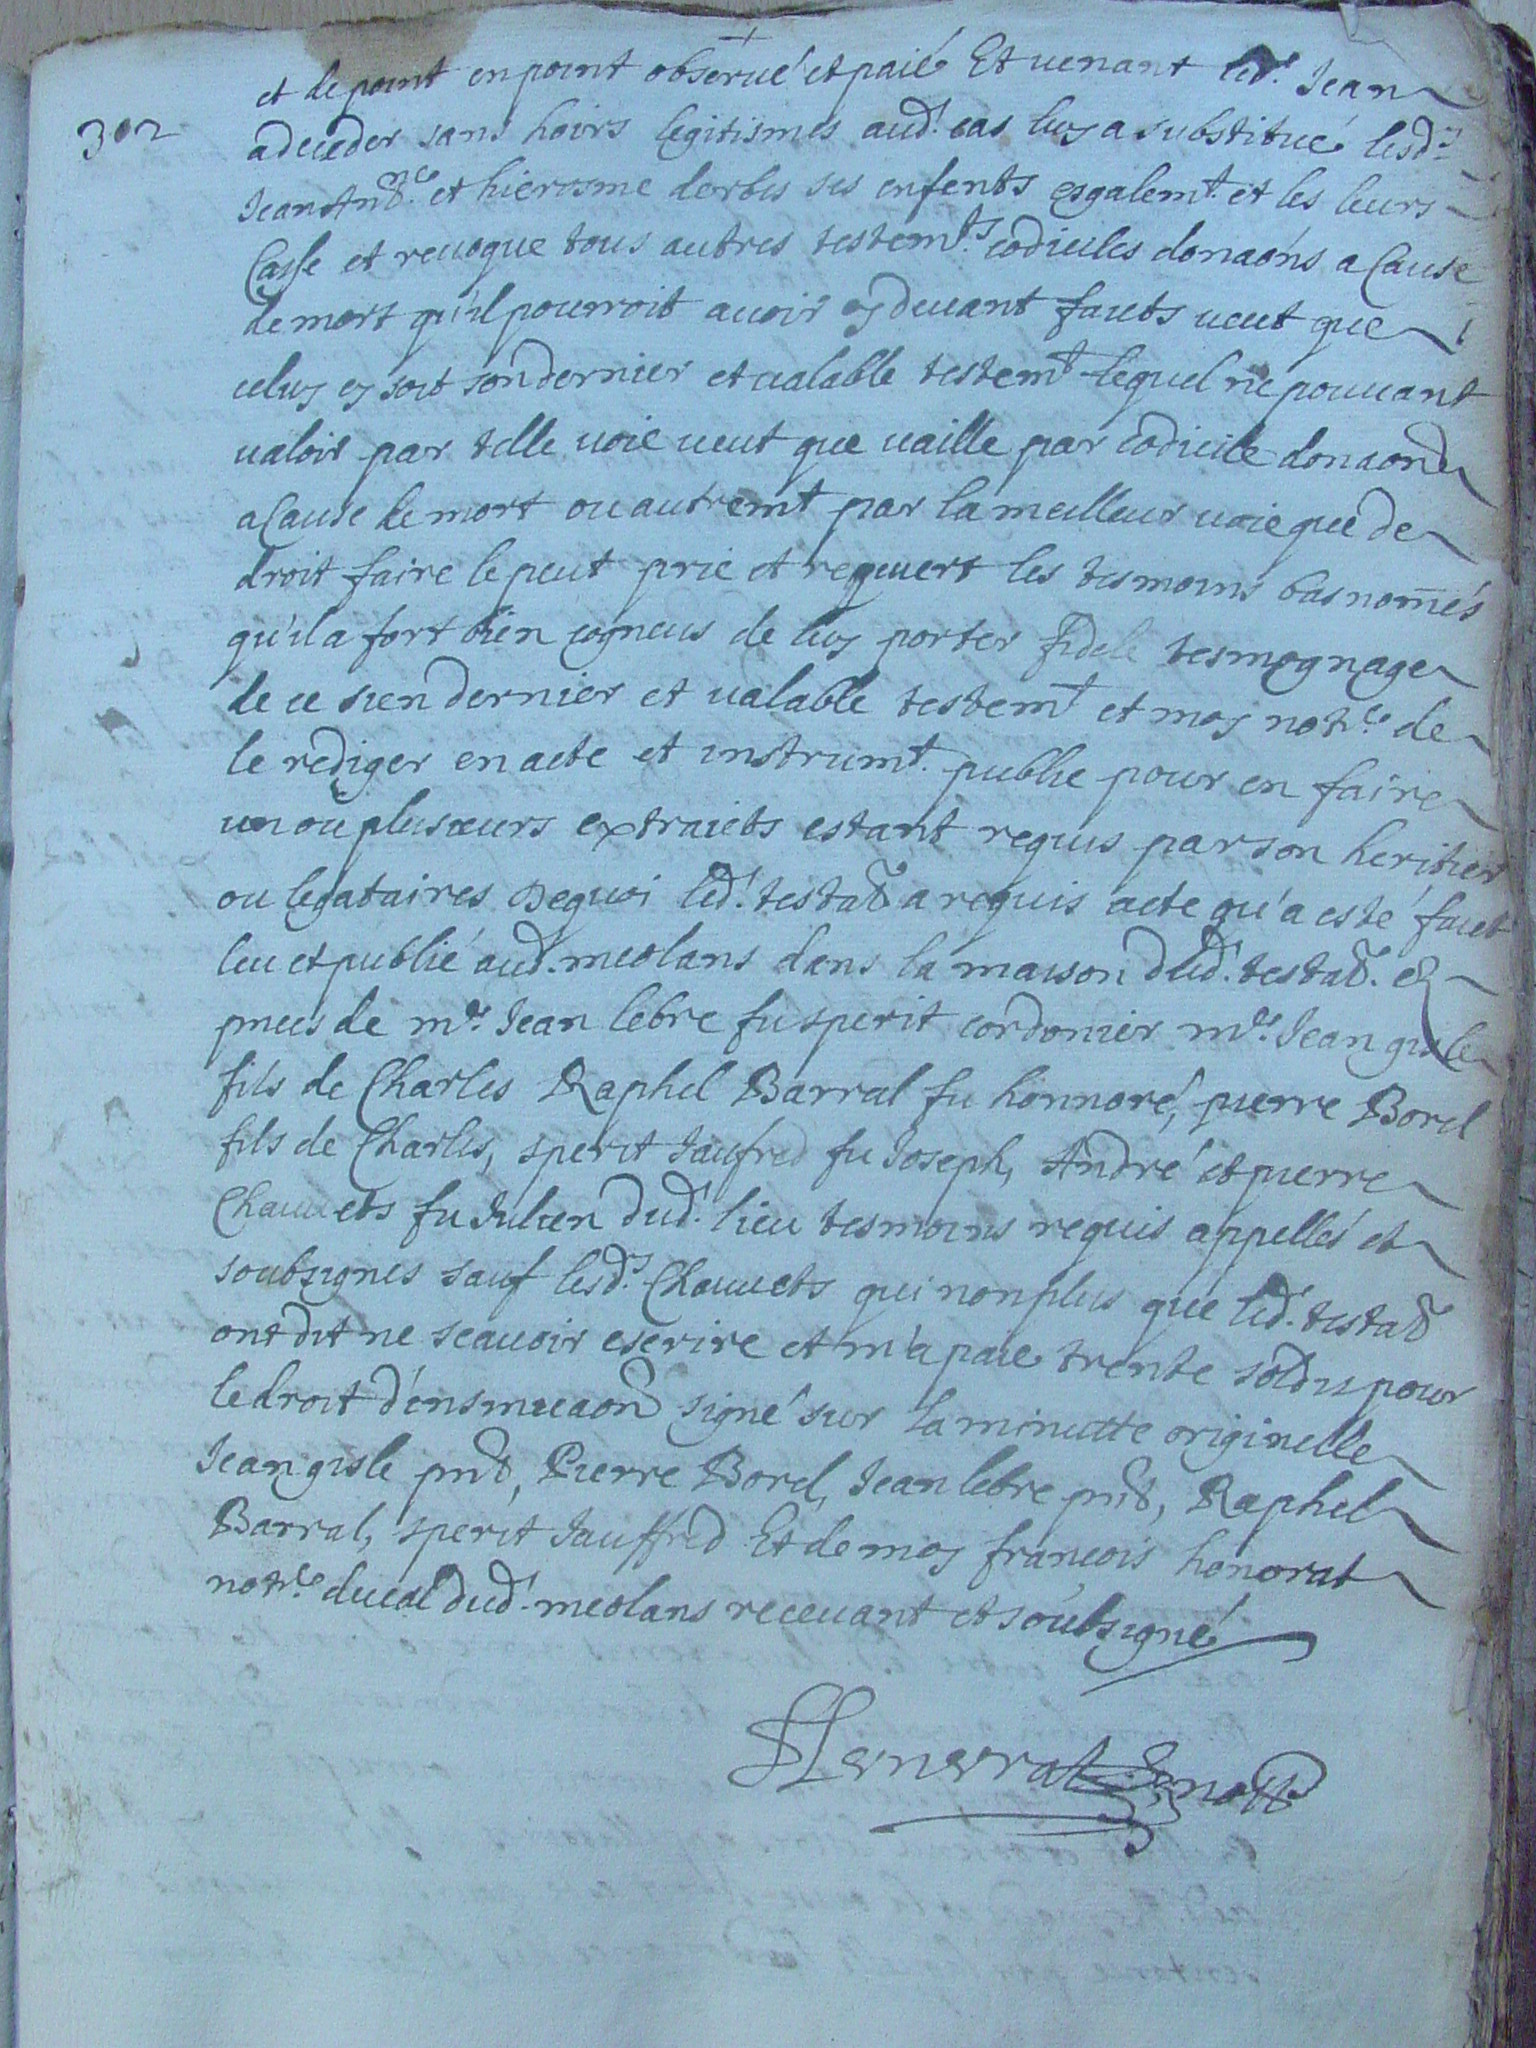 302
et de point en point observé et paié Et venant led.t Jean
a deceder sans hoirs legitismes aud.t cas luy a substitué lesd.ts
Jean Ant.ne et hierosme derbes ses enfents esgalem.t et les leurs
Casse et revoque tous autres testem.ts codiciles donaons a Cause
de mort qu'il pourroit avoir cy devant faicts veut que
celuy cy soit son dernier et valable testem.t lequel ne pouvant
valoir par telle voie veut que vaille par codicile donaon
a Cause de mort ou autrem.t par la meilleur voie que de
droit faire le peut prie et requiert les tesmoins bas nom̃és
qu'il a fort bien cogneus de luy porter fidele tesmognage
de ce sien dernier et valable testem.t et moy not.re de
le rediger en acte et instrum.t public pour en faire
un ou plusieurs extraicts estant requis par son heritier
ou legataires Dequoi led.t testat.r a requis acte qu'a esté faict
leu et publié aud.t meolans dens la maison dud.t testat.r &
pnces de m.re Jean lebre fu sperit cordonier m.re Jean gisle
fils de Charles Raphel Barral fu honnoré, pierre Borel
fils de Charles, sperit Jaufred fu Joseph, André et pierre
Chauvets fu Julien dud.t lieu tesmoins requis appellés et
soubsignes sauf lesd.ts Chauvets qui non plus que led.t testat.r
ont dit ne scavoir escrire et m'a paie trente solds pour
le droit d'ensinuaon signé sur la minutte originelle
Jean gisle pnt, Pierre Borel, Jean lebre pnt, Raphel
Barral, sperit Jauffred Et de moy francois honorat
not.re ducal dud.t meolans recevant et soubsigné
Honnorat not.re